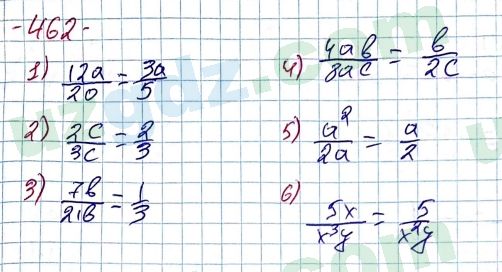 -462-
1) 12a/20 = 3a/5
2) 2c/3c = 2/3
3) 7b/21b = 1/3
4) 4ab/8ac = b/2c
5) a²/2a = a/2
6) 5x/x³y = 5/x²y
uzgdz.com